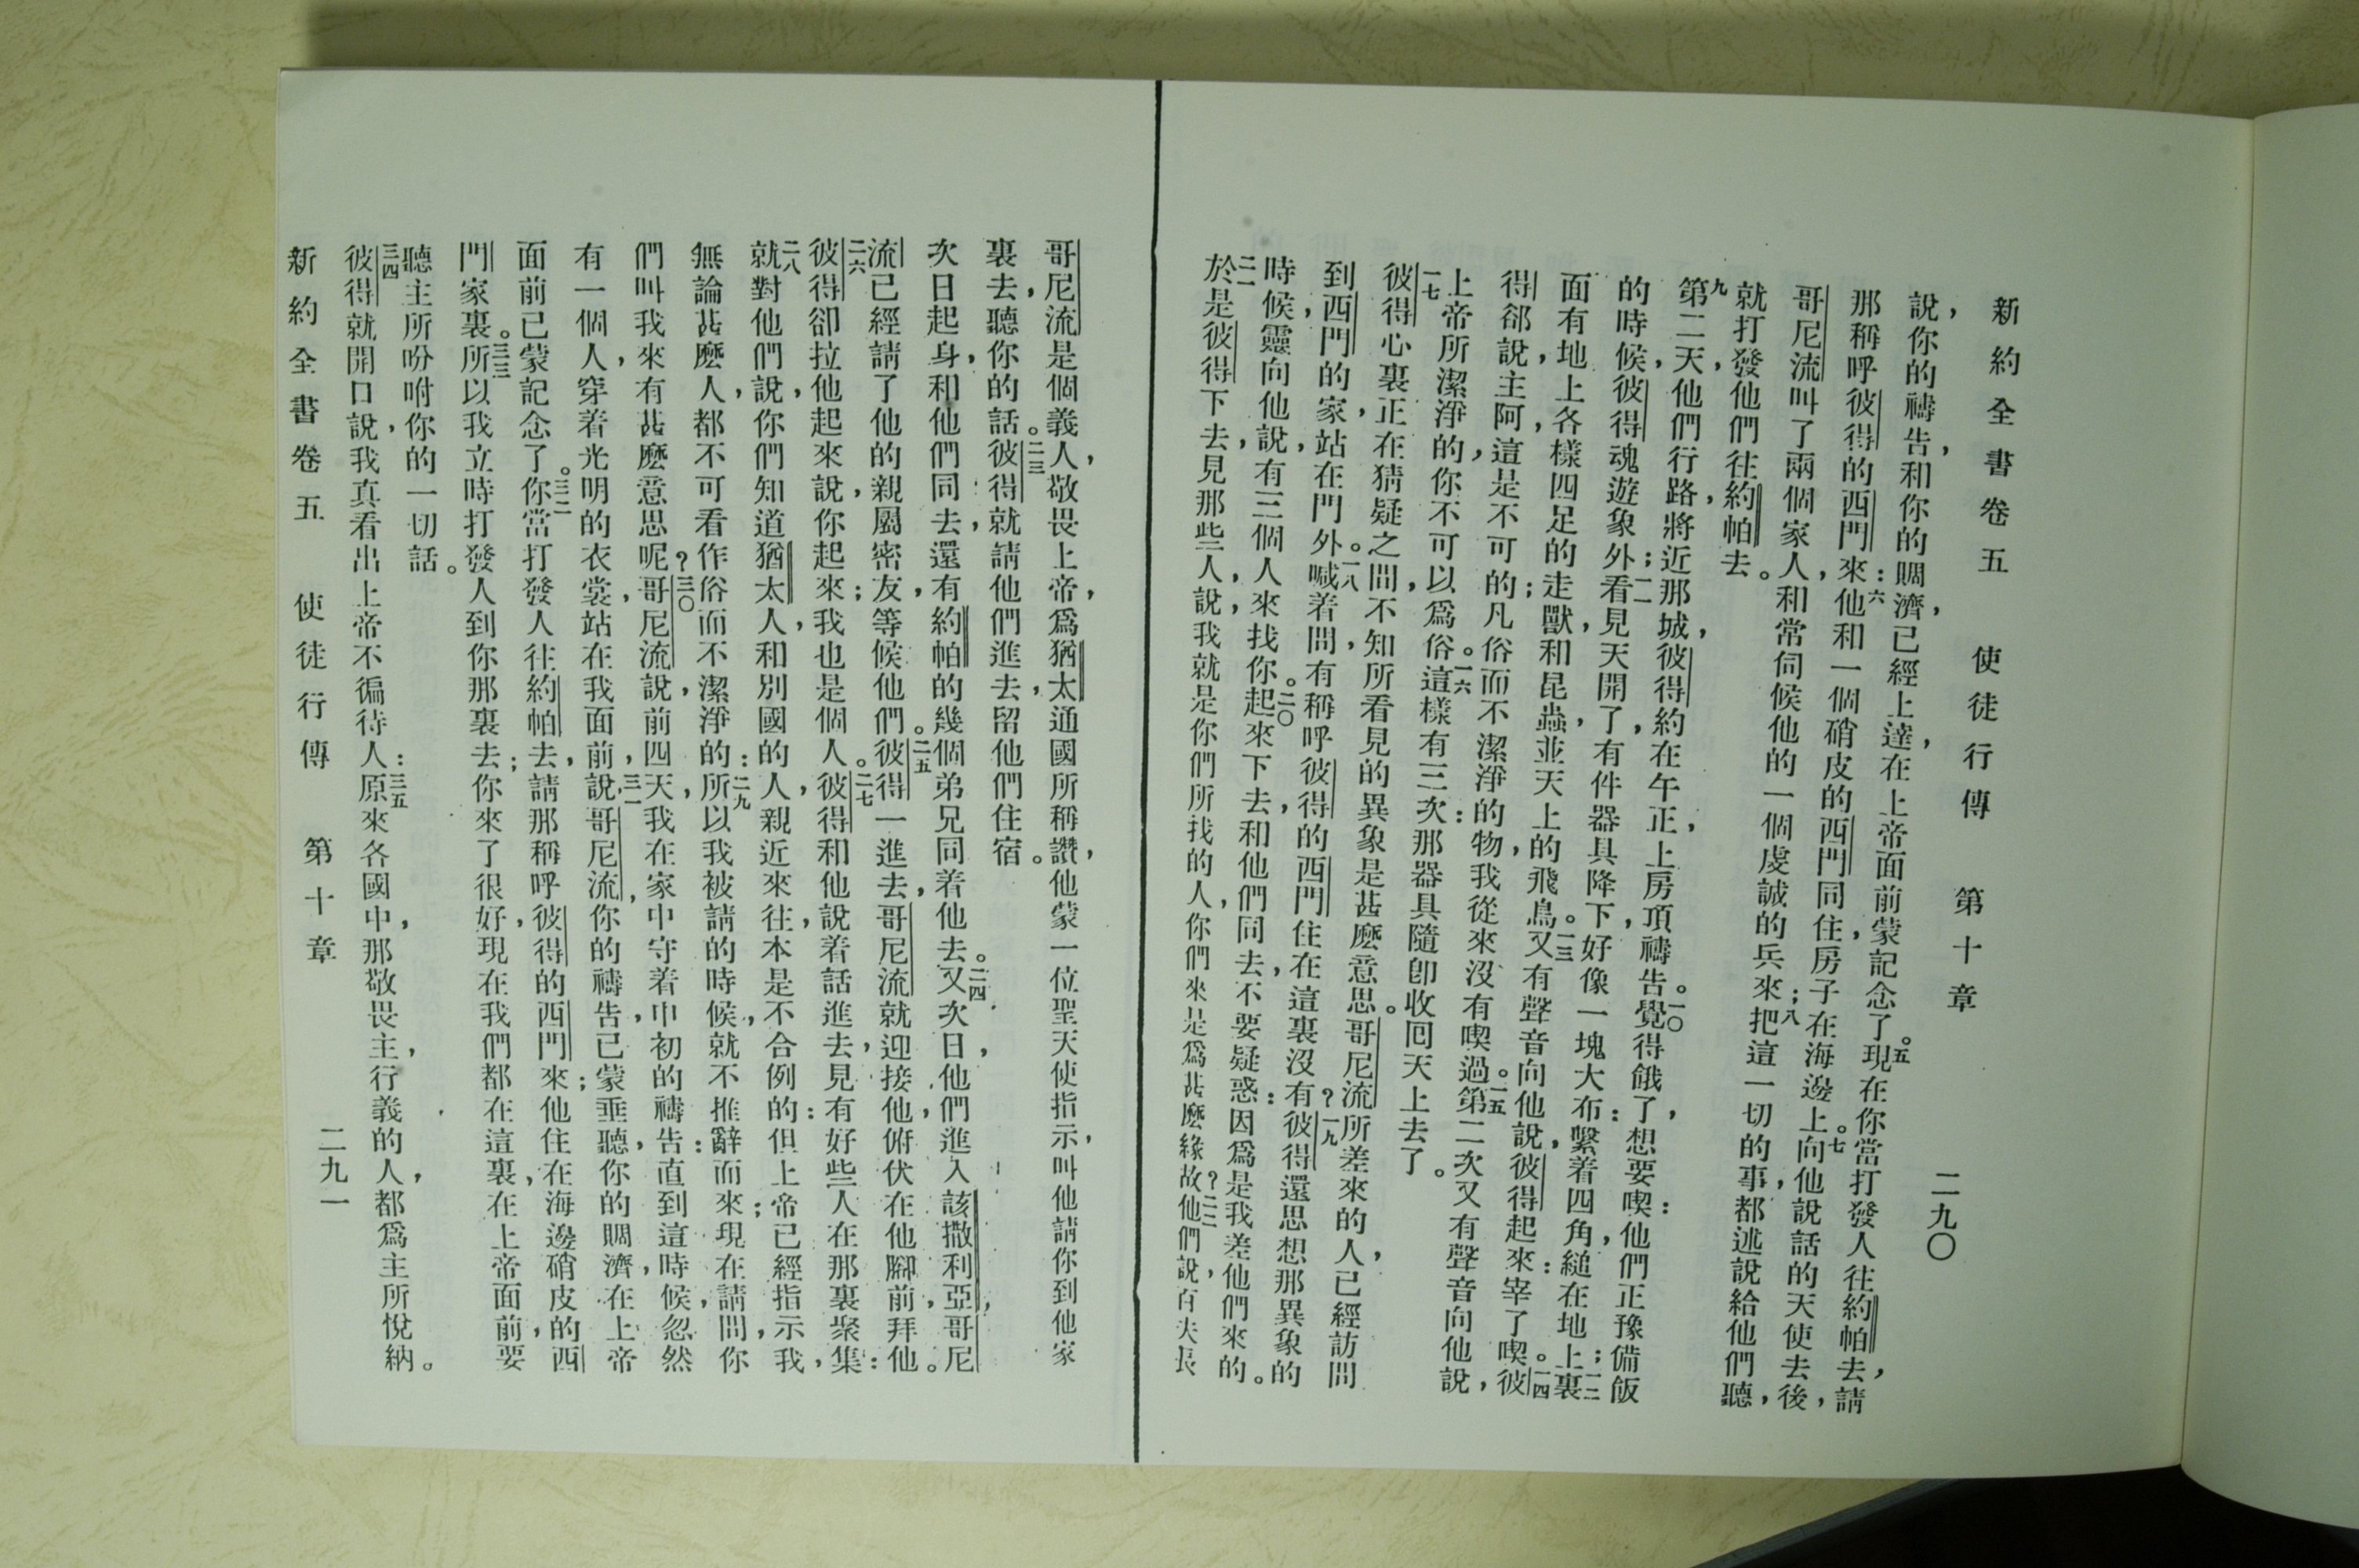 新約全書卷五　使徒行傳　第十章　二九〇
說，你的禱告，和你的賙濟，已經上達，在上帝面前蒙記念了。五現在你當打發人往約帕去，請
那稱呼彼得的西門來：六他和一個硝皮的西門同住，房子在海邊上。七向他說話的天使去後，
哥尼流叫了兩個家人，和常伺候他的一個虔誠的兵來；八把這一切的事，都述說給他們聽，
就打發他們往約帕去。
九第二天，他們行路，將近那城，彼得約在午正，上房頂禱告。一〇覺得餓了，想要喫：他們正豫備飯
的時候，彼得魂遊象外；一一看見天開了，有件器具降下，好像一塊大布：繫着四角，縋在地上；一二裏
面有地上各樣四足的走獸，和昆蟲，並天上的飛鳥。一三又有聲音向他說，彼得起來：宰了喫。一四彼
得卻說，主阿，這是不可的；凡俗而不潔淨的物，我從來沒有喫過。一五第二次又有聲音向他說，
上帝所潔淨的，你不可以爲俗。一六這樣有三次：那器具隨卽收囘天上去了。
一七彼得心裏正在猜疑之間，不知所看見的異象是甚麽意思。哥尼流所差來的人，已經訪問
到西門的家，站在門外。一八喊着問，有稱呼彼得的西門住在這裏沒有？一九彼得還思想那異象的
時候，靈向他說，有三個人來找你。二〇起來，下去，和他們同去，不要疑惑：因爲是我差他們來的。
二一於是彼得下去，見那些人，說，我就是你們所找的人，你們來是爲甚麽緣故？二二他們說，百夫長
哥尼流是個義人，敬畏上帝，爲猶太通國所稱讚，他蒙一位聖天使指示，叫他請你到他家
裏去，聽你的話。二三彼得就請他們進去，留他們住宿。
次日起身，和他們同去，還有約帕的幾個弟兄同着他去。二四又次日，他們進入該撒利亞，哥尼
流已經請了他的親屬密友，等候他們。二五彼得一進去，哥尼流就迎接他，俯伏在他腳前，拜他。
二六彼得卻拉他起來，說，你起來；我也是個人。二七彼得和他說着話進去，見有好些人在那裏聚集：
二八就對他們說，你們知道猶太人，和別國的人，親近來往，本是不合例的：但上帝已經指示我，
無論甚麽人，都不可看作俗而不潔淨的：二九所以我被請的時候，就不推辭而來；現在請問，你
們叫我來有甚麽意思呢？三〇哥尼流說，前四天，我在家中守着申初的禱告：直到這時候，忽然
有一個人，穿着光明的衣裳，站在我面前，三一說，哥尼流，你的禱告，已蒙垂聽，你的賙濟，在上帝
面前已蒙記念了。三二你當打發人往約帕去，請那稱呼彼得的西門來；他住在海邊硝皮的西
門家裏。三三所以我立時打發人到你那裏去；你來了很好，現在我們都在這裏，在上帝面前，要
聽主所吩咐你的一切話。
三四彼得就開口，說，我真看出上帝不徧待人：三五原來各國中，那敬畏主，行義的人，都爲主所悅納。
新約全書卷五　使徒行傳　第十章　二九一